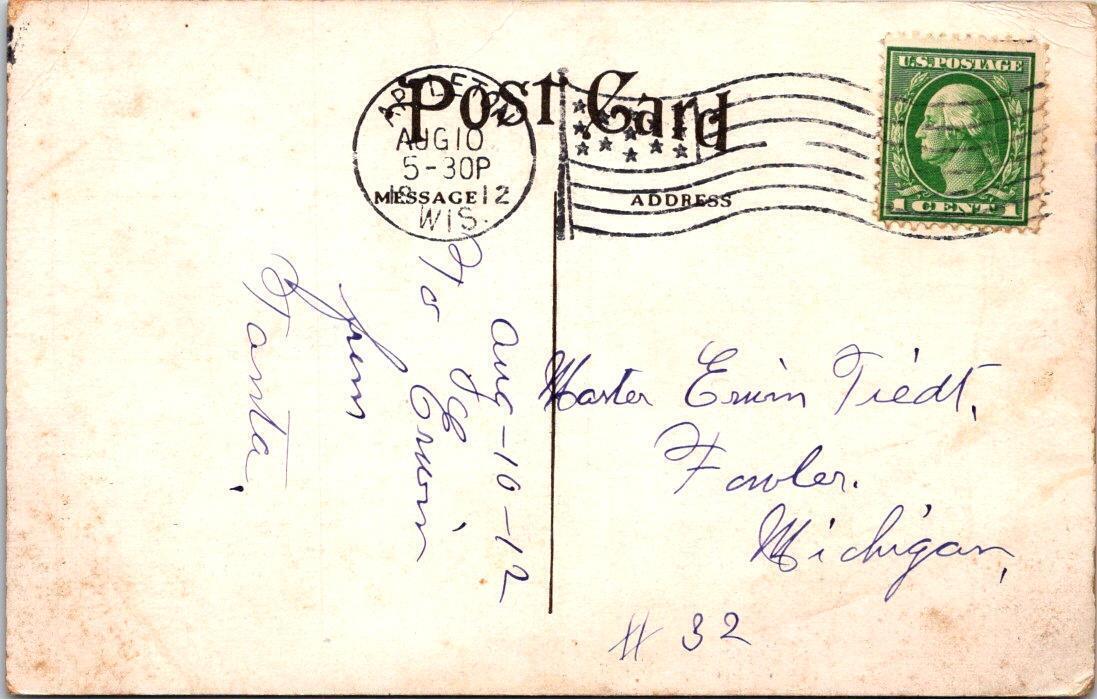 Post Card
APPLETON
AUG 10
5-30P
1912
WIS.
MESSAGE
ADDRESS
U.S. POSTAGE
1 CENT 1
Aug-10-12
To
Erwin
from
Tanta.
Master Erwin Tiedt,
Fowler.
Michigan,
# 32